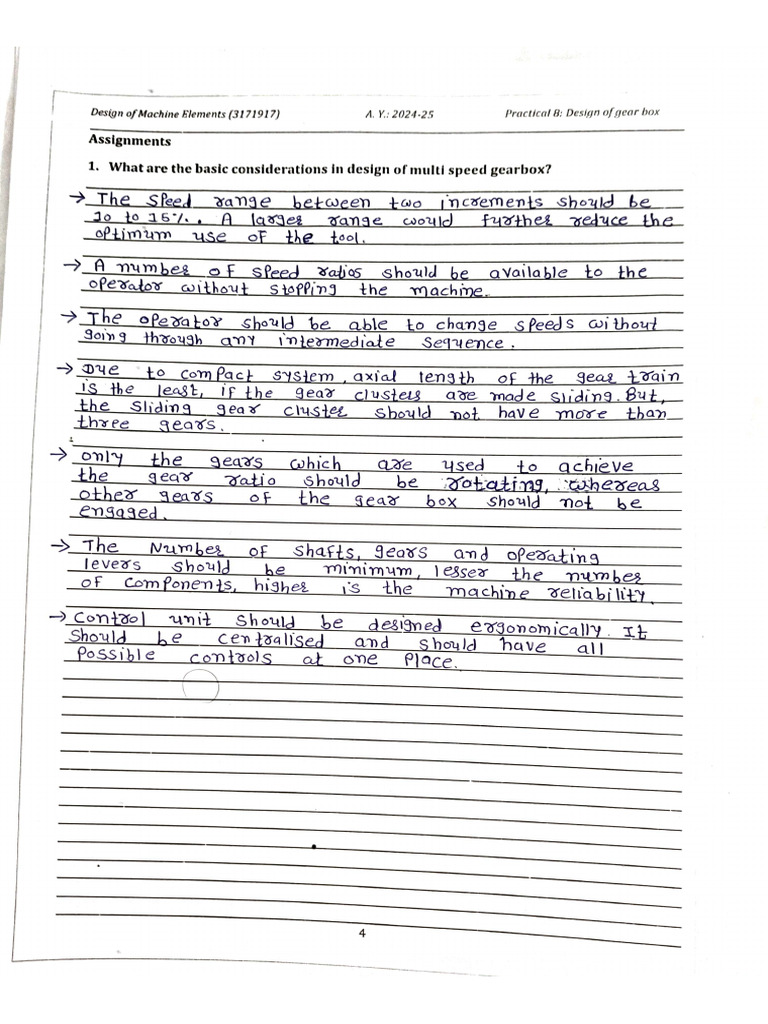 Design of Machine Elements (3171917) A. Y.: 2024-25 Practical 8: Design of gear box
Assignments
1. What are the basic considerations in design of multi speed gearbox?
→ The speed range between two increments should be
10 to 15%. A larger range would further reduce the
optimum use of the tool.
→ A number of speed ratios should be available to the
operator without stopping the machine.
→ The operator should be able to change speeds without
going through any intermediate sequence.
→ Due to compact system, axial length of the gear train
is the least, if the gear clusters are made sliding. But,
the sliding gear cluster should not have more than
three gears.
→ only the gears which are used to achieve
the gear ratio should be rotating, whereas
other gears of the gear box should not be
engaged.
→ The Number of shafts, gears and operating
levers should be minimum, lesser the number
of components, higher is the machine reliability.
→ Control unit should be designed ergonomically. It
should be centralised and should have all
possible controls at one place.
4